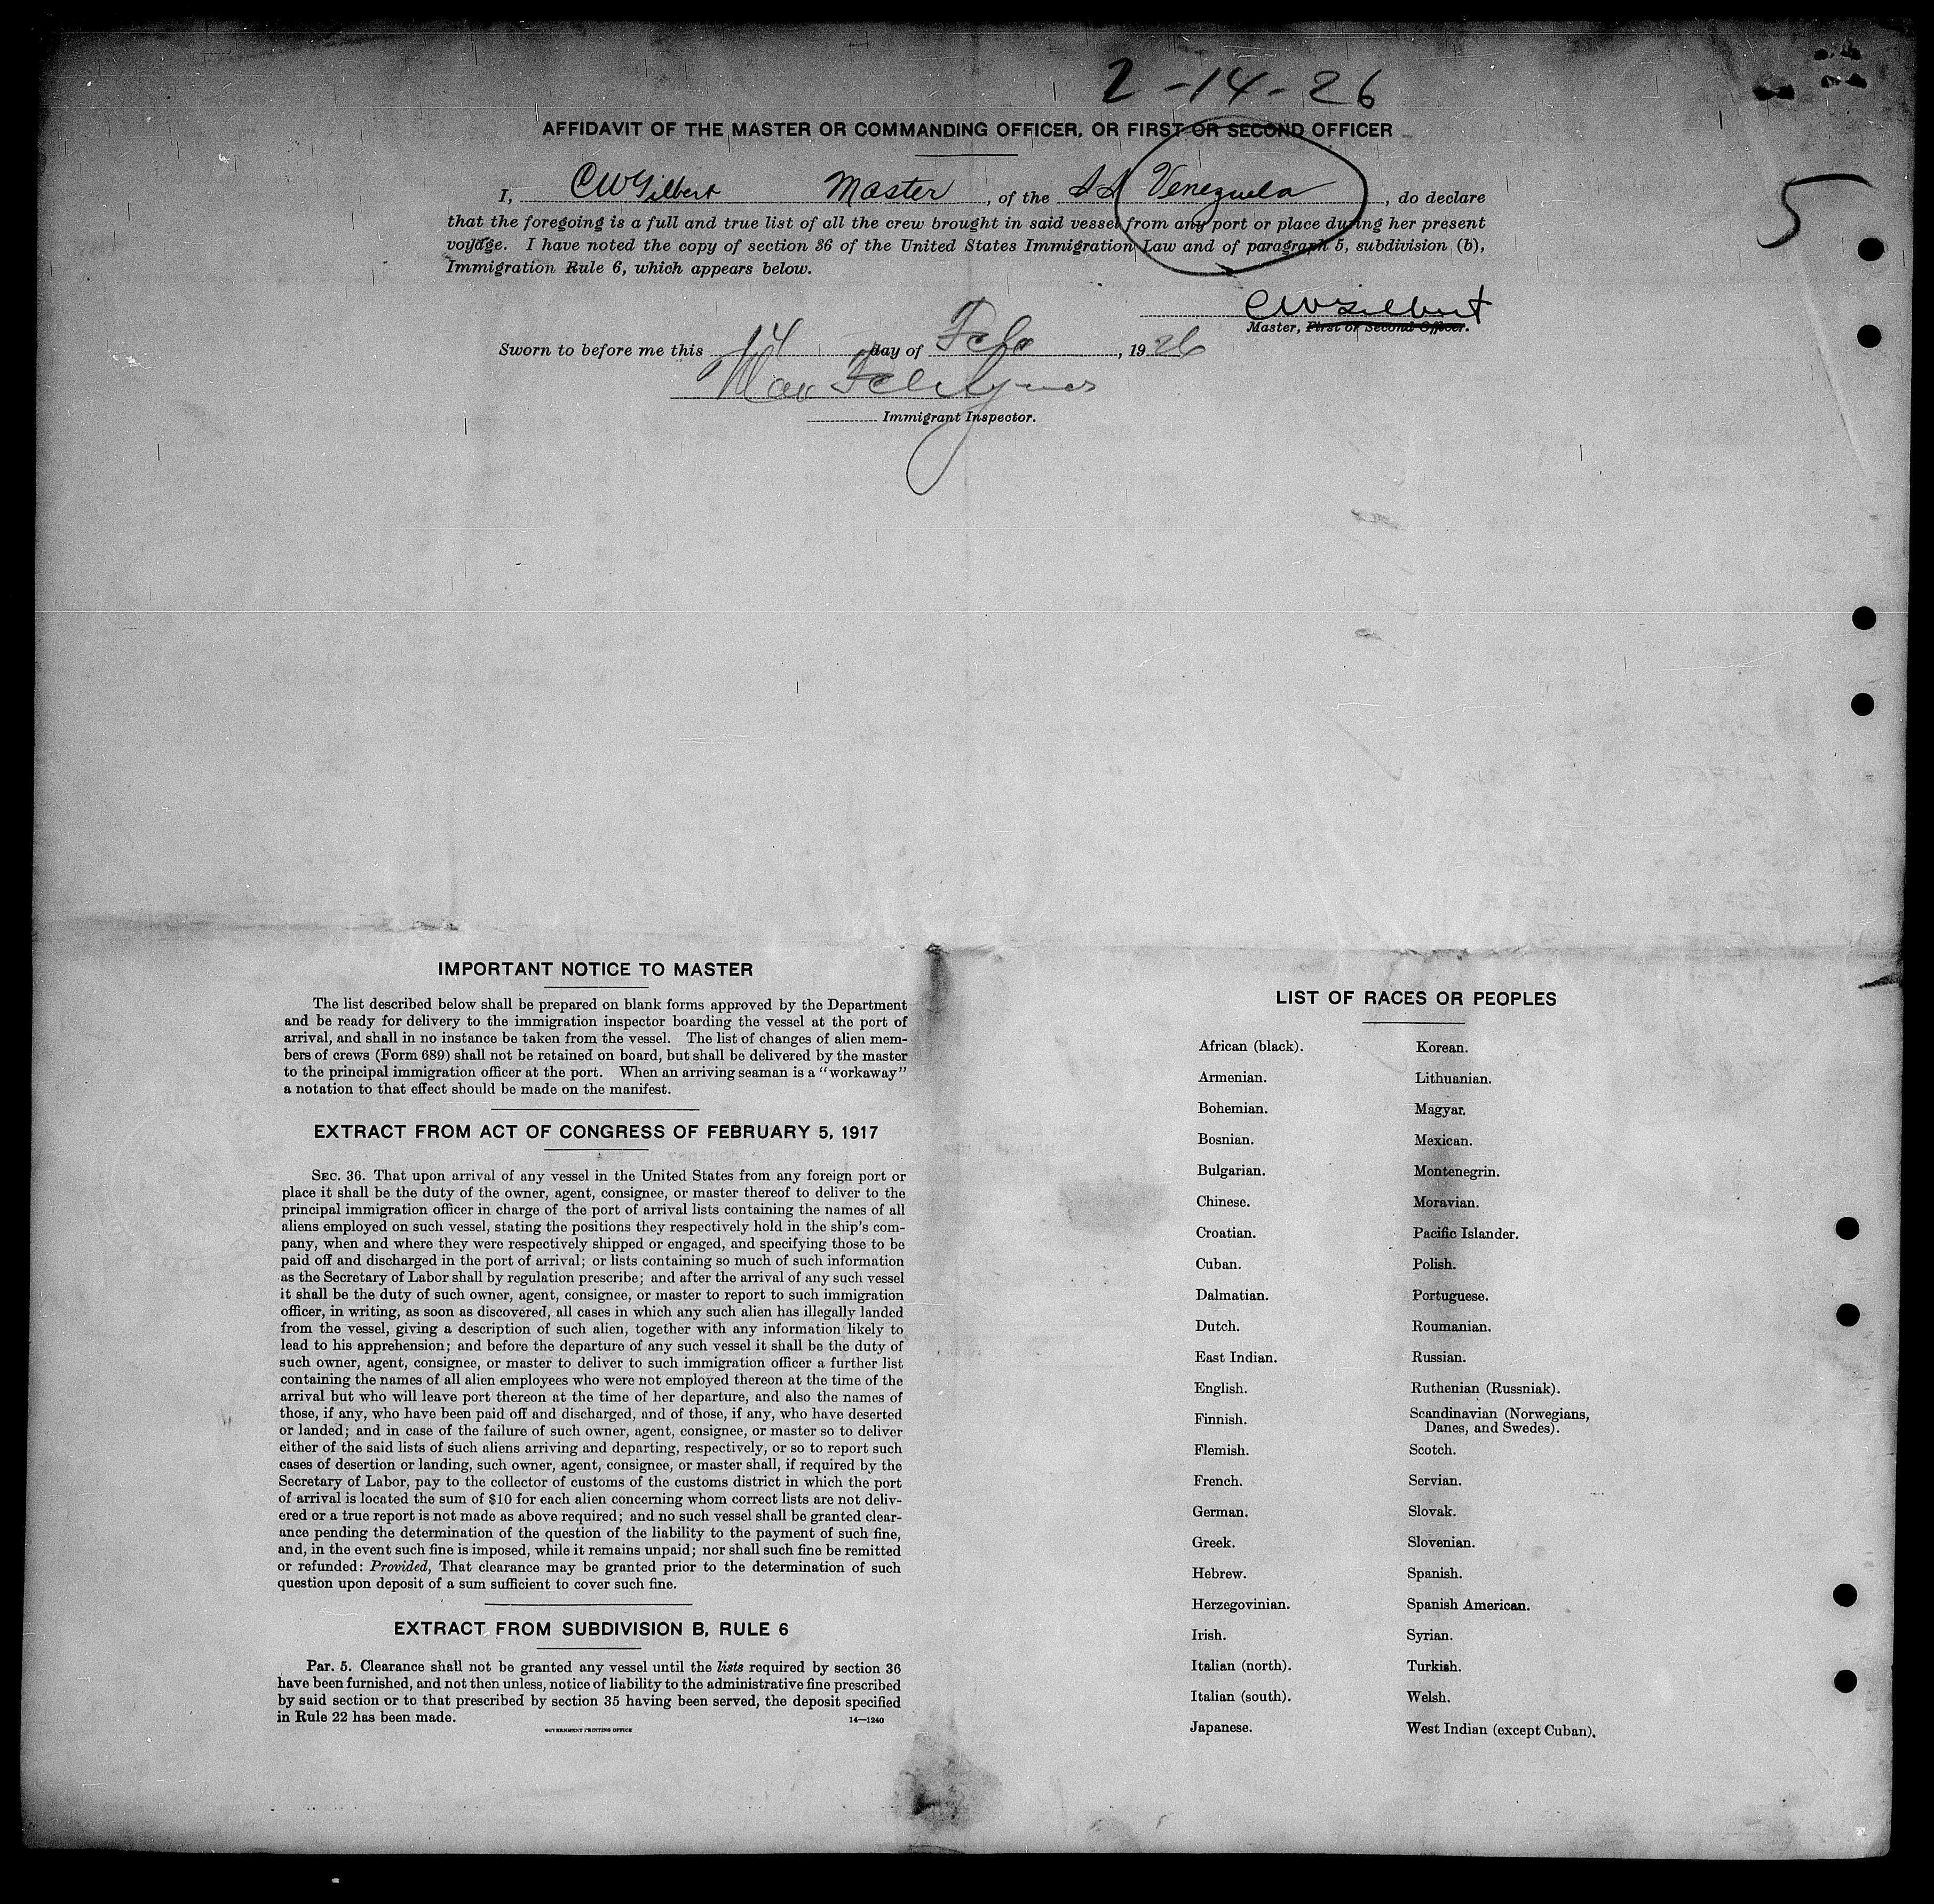 2-14-26
AFFIDAVIT OF THE MASTER OR COMMANDING OFFICER, OR FIRST OR SECOND OFFICER
I, CWGilbert Master, of the SS Venezuela, do declare
that the foregoing is a full and true list of all the crew brought in said vessel from any port or place during her present
voyage. I have noted the copy of section 36 of the United States Immigration Law and of paragraph 5, subdivision (b),
Immigration Rule 6, which appears below.
5
CWGilbert
Master, First or Second Officer.
Sworn to before me this 14 day of Feb, 1926
Immigrant Inspector.
IMPORTANT NOTICE TO MASTER
The list described below shall be prepared on blank forms approved by the Department
and be ready for delivery to the immigration inspector boarding the vessel at the port of
arrival, and shall in no instance be taken from the vessel. The list of changes of alien mem-
bers of crews (Form 689) shall not be retained on board, but shall be delivered by the master
to the principal immigration officer at the port. When an arriving seaman is a "workaway"
a notation to that effect should be made on the manifest.
EXTRACT FROM ACT OF CONGRESS OF FEBRUARY 5, 1917
SEC. 36. That upon arrival of any vessel in the United States from any foreign port or
place it shall be the duty of the owner, agent, consignee, or master thereof to deliver to the
principal immigration officer in charge of the port of arrival lists containing the names of all
aliens employed on such vessel, stating the positions they respectively hold in the ship's com-
pany, when and where they were respectively shipped or engaged, and specifying those to be
paid off and discharged in the port of arrival; or lists containing so much of such information
as the Secretary of Labor shall by regulation prescribe; and after the arrival of any such vessel
it shall be the duty of such owner, agent, consignee, or master to report to such immigration
officer, in writing, as soon as discovered, all cases in which any such alien has illegally landed
from the vessel, giving a description of such alien, together with any information likely to
lead to his apprehension; and before the departure of any such vessel it shall be the duty of
such owner, agent, consignee, or master to deliver to such immigration officer a further list
containing the names of all alien employees who were not employed thereon at the time of the
arrival but who will leave port thereon at the time of her departure, and also the names of
those, if any, who have been paid off and discharged, and of those, if any, who have deserted
or landed; and in case of the failure of such owner, agent, consignee, or master so to deliver
either of the said lists of such aliens arriving and departing, respectively, or so to report such
cases of desertion or landing, such owner, agent, consignee, or master shall, if required by the
Secretary of Labor, pay to the collector of customs of the customs district in which the port
of arrival is located the sum of $10 for each alien concerning whom correct lists are not deliv-
ered or a true report is not made as above required; and no such vessel shall be granted clear-
ance pending the determination of the question of the liability to the payment of such fine,
and, in the event such fine is imposed, while it remains unpaid; nor shall such fine be remitted
or refunded: Provided, That clearance may be granted prior to the determination of such
question upon deposit of a sum sufficient to cover such fine.
EXTRACT FROM SUBDIVISION B, RULE 6
Par. 5. Clearance shall not be granted any vessel until the lists required by section 36
have been furnished, and not then unless, notice of liability to the administrative fine prescribed
by said section or to that prescribed by section 35 having been served, the deposit specified
in Rule 22 has been made. 14—1240
GOVERNMENT PRINTING OFFICE
LIST OF RACES OR PEOPLES
African (black). Korean.
Armenian. Lithuanian.
Bohemian. Magyar.
Bosnian. Mexican.
Bulgarian. Montenegrin.
Chinese. Moravian.
Croatian. Pacific Islander.
Cuban. Polish.
Dalmatian. Portuguese.
Dutch. Roumanian.
East Indian. Russian.
English. Ruthenian (Russniak).
Finnish. Scandinavian (Norwegians,
Danes, and Swedes).
Flemish. Scotch.
French. Servian.
German. Slovak.
Greek. Slovenian.
Hebrew. Spanish.
Herzegovinian. Spanish American.
Irish. Syrian.
Italian (north). Turkish.
Italian (south). Welsh.
Japanese. West Indian (except Cuban).